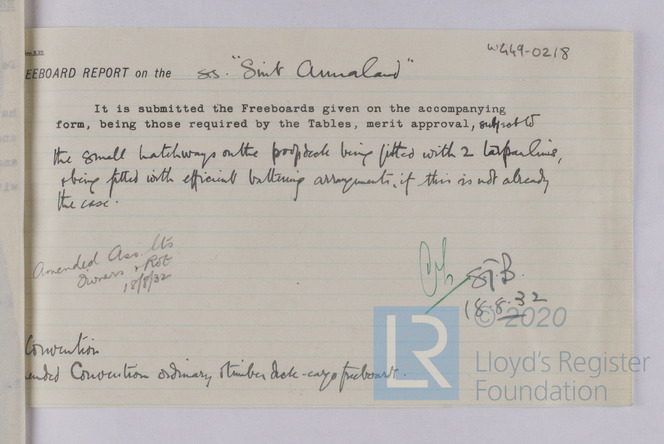 W449-0218
EEBOARD REPORT on the s.s. "Sint Annaland"
It is submitted the Freeboards given on the accompanying
form, being those required by the Tables, merit approval, subject to
the small hatchways on the poop deck being fitted with 2 tarpaulins,
& being fitted with efficient battening arrangements, if this is not already
the case.
Amended Ass. Lts
Owners & Rot
18/8/32
18.8.32
© 2020
LR
Lloyd's Register
Foundation
Convention
ended Convention ordinary & timber deck-cargo freeboards.